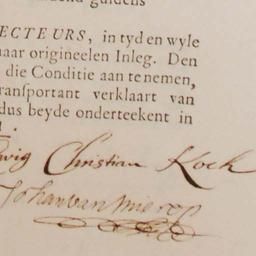 guldens
ECTEURS, in tyd en wyle
naar origineelen Inleg. Den
die Conditie aan te nemen,
transportant verklaart van
dus beyde onderteekent in
wig Christian Koch
Johan van Mierop